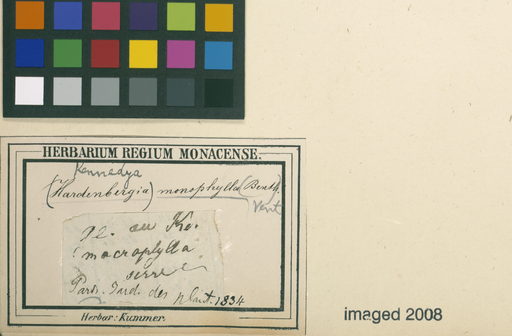 HERBARIUM REGIUM MONACENSE.
Kennedya
(Hardenbergia) monophylla (Benth.)
Vent
au Ke.
macrophylla
serre
Paris. Jard. des plant. 1834
Herbar: Kummer.
imaged 2008